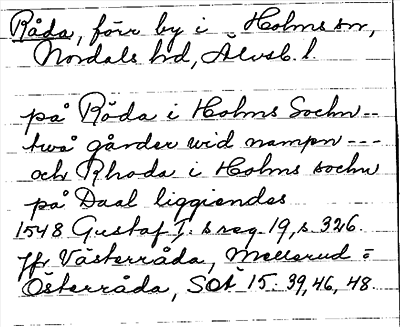 Råda, förr by i Holms sn,
Nordals hd, Älvsb. l.
på Råda i Holms Sochn --
twå gårder wid nampn ---
och Rhoda i Holms sochn
på Daal liggiendes
1548 Gustaf I:s reg. 19, s. 326.
Jfr Västerråda, Mellerud =
Österråda, SOÄ 15: 39, 46, 48.